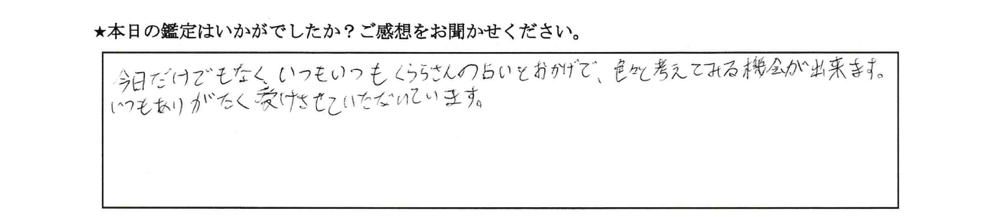 ★本日の鑑定はいかがでしたか？ご感想をお聞かせください。
今日だけでもなく、いつもいつもくららさんの占いとおかげで、色々と考えてみる機会が出来ます。
いつもありがたく受けさせていただいています。